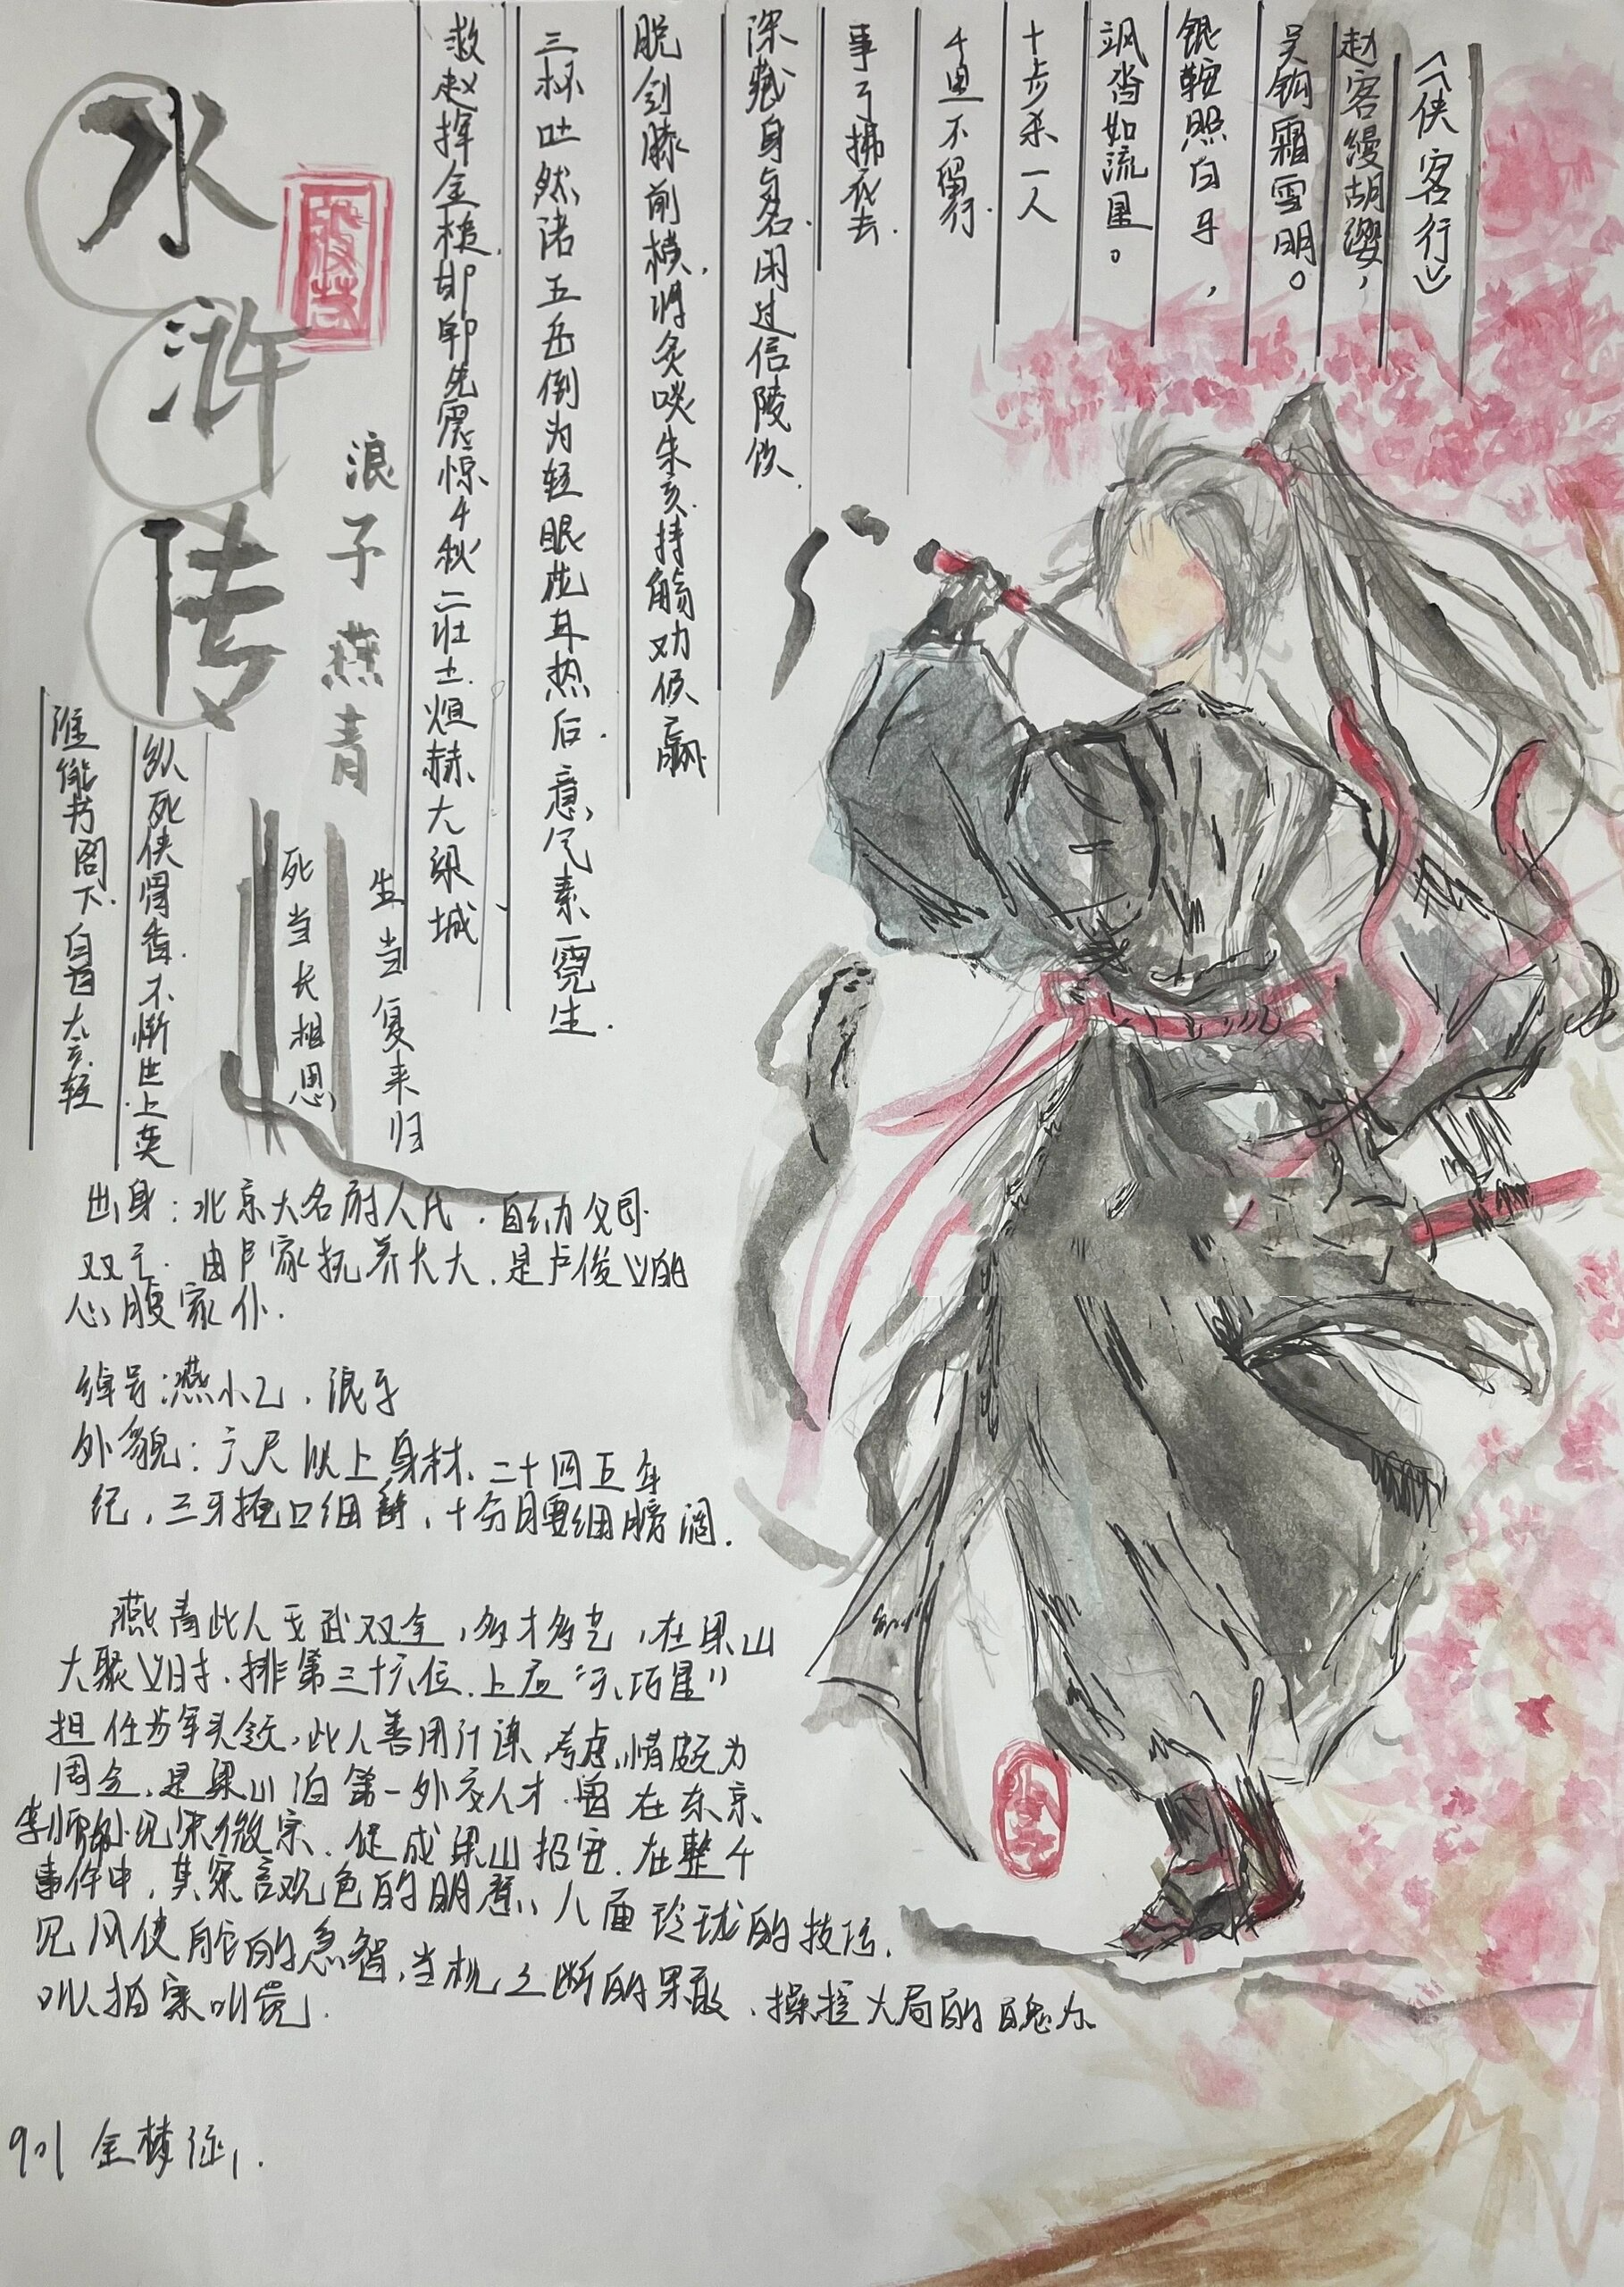 《侠客行》
赵客缦胡缨，
吴钩霜雪明。
银鞍照白马，
飒沓如流星。
十步杀一人
千里不留行.
事了拂衣去.
深藏身与名.闲过信陵饮.
脱剑膝前横.将炙啖朱亥.持觞劝侯嬴
三杯吐然诺五岳倒为轻眼花耳热后.意气素霓生.
救赵挥金槌.邯郸先震惊千秋二壮士.烜赫大梁城
纵死侠骨香.不惭世上英
谁能书阁下.白首太玄经
水浒传
浪子燕青
生当复来归
死当长相思
出身:北京大名府人氏.自幼父母
双亡.由卢家抚养长大.是卢俊义的
心腹家仆.
绰号:燕小乙.浪子
外貌:六尺以上身材、二十四五年
纪,三牙掩口细髯,十分腰细膀阔.
燕青此人文武双全,多才多艺,在梁山
大聚义时.排第三十六位.上应“天巧星”
担任步军头领,此人善用计谋,考虑事情颇为
周全,是梁山泊第一外交人才.曾在东京
李师师处见宋徽宗.促成梁山招安.在整个
事件中,其察言观色的明慧、八面玲珑的技巧.
见风使舵的急智,当机立断的果敢、操控大局的魄力
叫人拍案叫绝.
901 金梦